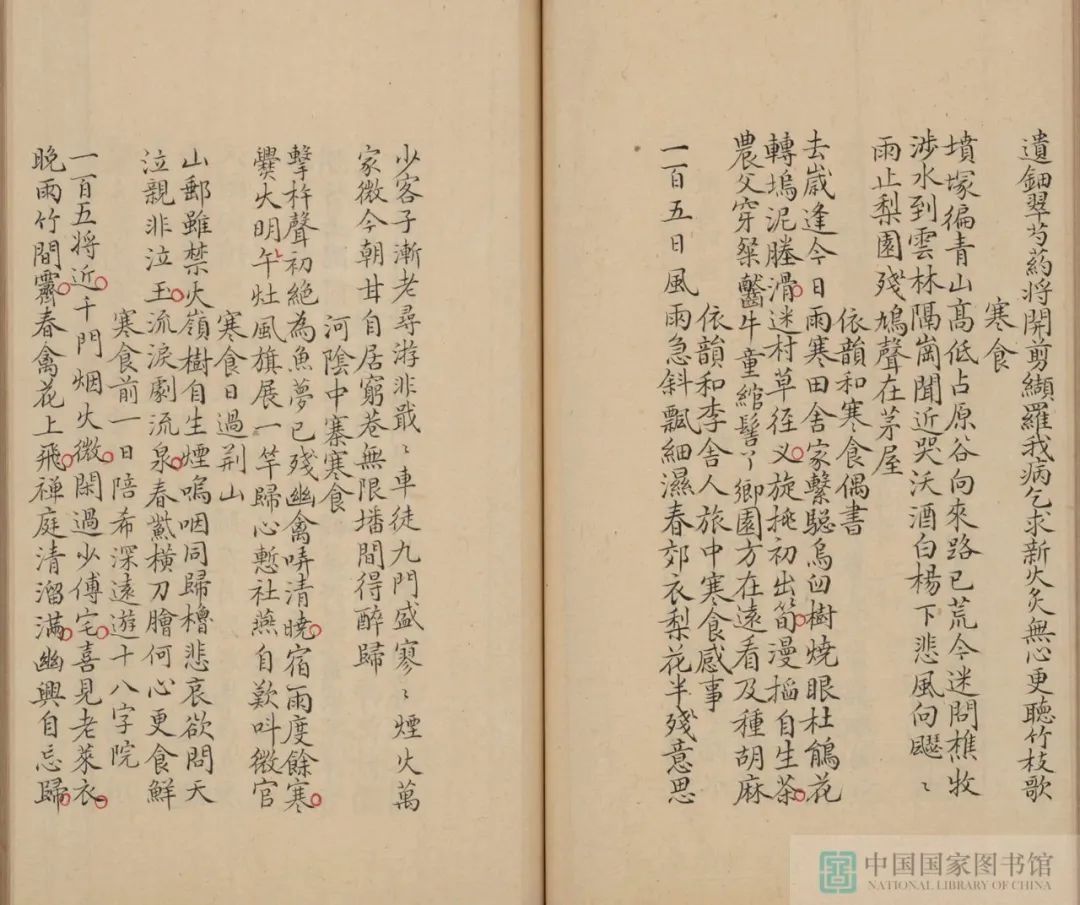 遺鈿翠芍葯將開剪纈羅我病乞求新火炙無心更聽竹枝歌
寒食
墳塚徧青山高低占原谷向來路已荒今迷問樵牧
涉水到雲林隔崗聞近哭沃酒白楊下悲風向飂〻
雨止梨園殘鳩聲在茅屋
依韻和寒食偶書
去歳逢今日雨寒田舍家繫驄烏臼樹燒眼杜鵑花
轉塢泥塍滑迷村草徑义旋挑初出筍漫搯自生茶
農父穿犂䶩牛童綰髻丫鄉園方在遠看及種胡麻
依韻和李舍人旅中寒食感事
一百五日風雨急斜飄細濕春郊衣梨花半殘意思
少客子漸老尋游非戢〻車徒九門盛寥〻煙火萬
家微今朝甘自居窮巷無限墦間得醉歸
河陰中寨寒食
擊柝聲初絶為魚夢已殘幽禽哢清曉宿雨度餘寒
爨火明午灶風旗展一竿歸心慙社燕自歎呌微官
寒食日過荆山
山郵雖禁火嶺樹自生煙嗚咽同歸櫓悲哀欲問天
泣親非泣玉流淚劇流泉春鱉橫刀膾何心更食鮮
寒食前一日陪希深遠遊十八字院
一百五将近千門烟火微閑過少傅宅喜見老萊衣
晚雨竹間霽春禽花上飛禅庭清溜滿幽興自忘歸
中国国家图书馆
NATIONAL LIBRARY OF CHINA